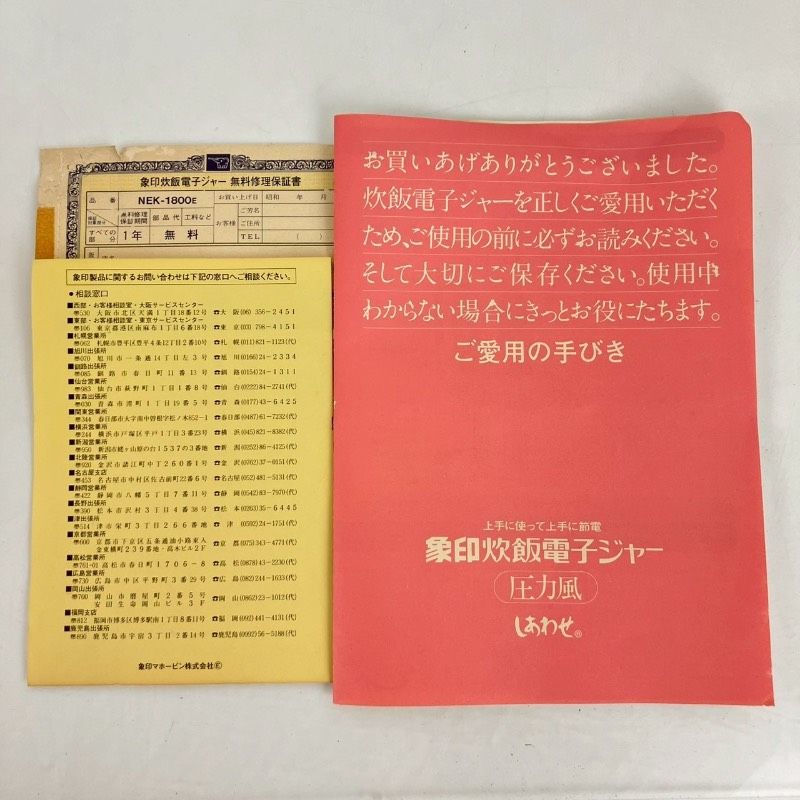 象印炊飯電子ジャー 無料修理保証書
品番 NEK-1800E お買い上げ日 昭和 年 月
無料修理保証期間 部品代 工料など お客様 ご芳名
ご住所
すべての部分 1年 無料 TEL ( )
象印製品に関するお問い合わせは下記の窓口へご相談ください。
●相談窓口
■西部・お客様相談室・大阪サービスセンター
〒530 大阪市北区天満1丁目18番12号 ☎大阪(06)356-2451
■東部・お客様相談室・東京サービスセンター
〒106 東京都港区南麻布1丁目6番18号 ☎東京(03)798-4151
■札幌営業所
〒062 札幌市豊平区豊平4条12丁目2番10号 ☎札幌(011)821-1123(代)
■旭川出張所
〒070 旭川市一条通14丁目左3号 ☎旭川(0166)24-2334
■釧路出張所
〒085 釧路市春日町11番13号 ☎釧路(0154)24-1311
■仙台営業所
〒983 仙台市萩野町1丁目1番8号 ☎仙台(0222)84-2741(代)
■青森出張所
〒030 青森市港町1丁目19番5号 ☎青森(0177)43-6425
■関東営業所
〒344 春日部市大字南中曽根字松ノ木852-1 ☎春日部(0487)61-7232(代)
■横浜営業所
〒244 横浜市戸塚区平戸1丁目3番23号 ☎横浜(045)821-8382(代)
■新潟営業所
〒950 新潟市姥ヶ山原の台1537の3番地 ☎新潟(0252)86-4125(代)
■北陸営業所
〒920 金沢市諸江町中丁260番1号 ☎金沢(0762)37-0151(代)
■名古屋支店
〒453 名古屋市中村区佐古前町22番6号 ☎名古屋(052)481-5131(代)
■静岡営業所
〒422 静岡市八幡5丁目7番11号 ☎静岡(0542)83-7970(代)
■長野出張所
〒390 松本市沢村3丁目4番38号 ☎松本(0263)35-6445
■津出張所
〒514 津市栄町3丁目266番地 ☎津(0592)24-1751(代)
■京都営業所
〒600 京都市下京区五条通堀小路東入
金東横町239番地・高木ビル2F ☎京都(075)343-4771(代)
■高松営業所
〒761-01 高松市春日町1706-8 ☎高松(0878)43-2230(代)
■広島営業所
〒730 広島市中区平野町3番29号 ☎広島(082)244-1633(代)
■岡山出張所
〒700 岡山市磨屋町2番5号
安田生命岡山ビル3F ☎岡山(0862)23-1012(代)
■福岡支店
〒812 福岡市博多区博多駅南1丁目8番11号 ☎福岡(092)441-4131(代)
■鹿児島出張所
〒896 鹿児島市宇宿3丁目2番14号 ☎鹿児島(0992)56-5188(代)
象印マホービン株式会社Ⓔ
お買いあげありがとうございました。
炊飯電子ジャーを正しくご愛用いただく
ため、ご使用の前に必ずお読みください。
そして大切にご保存ください。使用中
わからない場合にきっとお役にたちます。
ご愛用の手びき
上手に使って上手に節電
象印炊飯電子ジャー
圧力風
しあわせ®